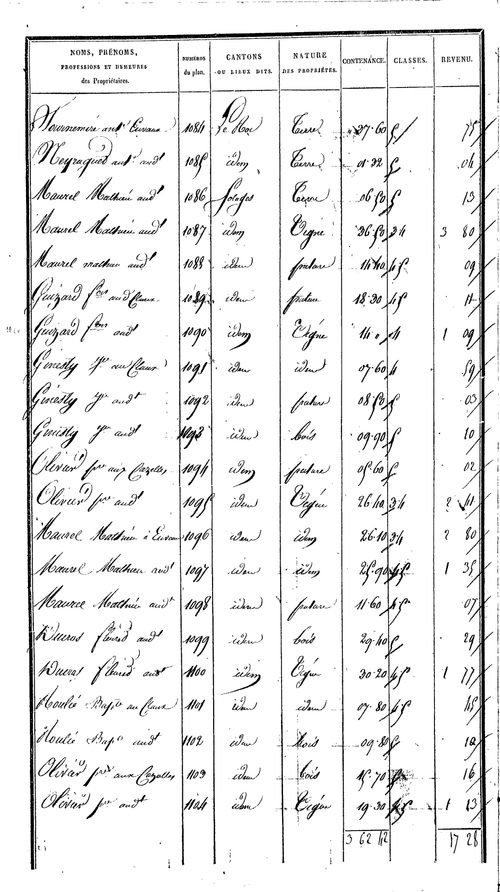 NOMS, PRÉNOMS, PROFESSIONS ET DEMEURES des Propriétaires. NUMÉROS du plan. CANTONS OU LIEUX DITS. NATURE DES PROPRIÉTÉS. CONTENANCE. CLASSES. REVENU.
Tournemire ant. 1084 Le Roc Terre 37.60 5 75
Neyraguet ant. aud. 1085 idem Terre 01.32 5 04
Maurel Mathieu aud. 1086 Terre 06.50 5 13
Maurel Mathieu aud. 1087 idem Vigne 36.50 34 3 80
Maurel mathieu aud. 1088 idem pature 14.40 45 09
Guizard aud. 1089 idem pature 18.30 45 11
Guizard aud. 1090 idem Vigne 4 1 09
Ginesty au Claux 1091 idem idem 07.60 4 59
Ginesty aud. 1092 idem pature 08.50 5 03
Ginesty aud. 1093 idem bois 09.90 5 10
Olivier pre aux Cazelles 1094 idem pature 05.60 5 02
Olivier pre aud. 1095 idem Vigne 26.40 34 2 41
Maurel Mathieu à 1096 idem idem 26.10 34 2 80
Maurel Mathieu aud. 1097 idem idem 25.90 45 1 35
Maurel Mathieu aud. 1098 idem pature 11.60 45 07
aud. 1099 idem bois 29.40 5 29
aud. 1100 idem Vigne 30.20 45 1 77
Bapte au Claux 1101 idem idem 07.80 45 45
Bapte aud. 1102 idem bois 09.80 5 10
Olivier pre aux Cazelles 1103 idem bois 15.70 5 16
Olivier pre aud. 1104 idem Vigne 19.30 45 1 13
3 62 42 17 28